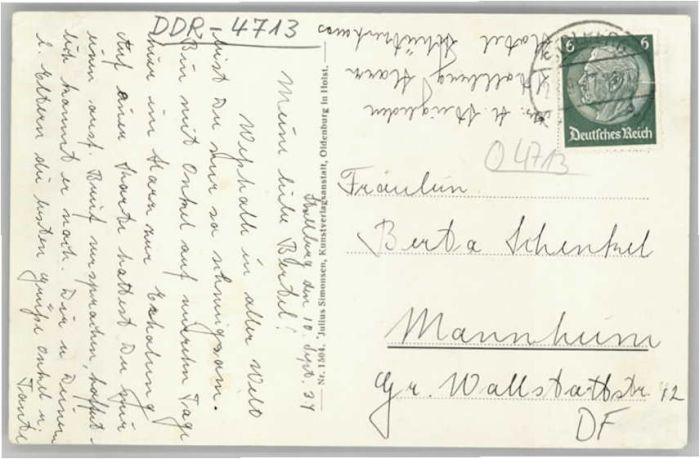 DDR-4713
Stollberg den 10. Sept. 34
Meine liebe Bertel!
Weshalb in aller Welt
bist Du nur so schweigsam.
Bin mit Onkel auf mehrere Tage
hier im Harz zur Erholung
Auf einer Karte hattest Du mir
einen ausf. Brief versprochen, hoffent-
lich kommt er noch. Dir u Deinen
l. Eltern die besten Grüße Onkel u
Tante
Nr. 1504. Julius Simonsen, Kunstverlagsanstalt, Oldenburg in Holst.
Stollberg Harz
Hotel
6 6
Deutsches Reich
O 4713
Fräulein
Berta Schenkel
Mannheim
Gr. Wallstattstr. 42
DF